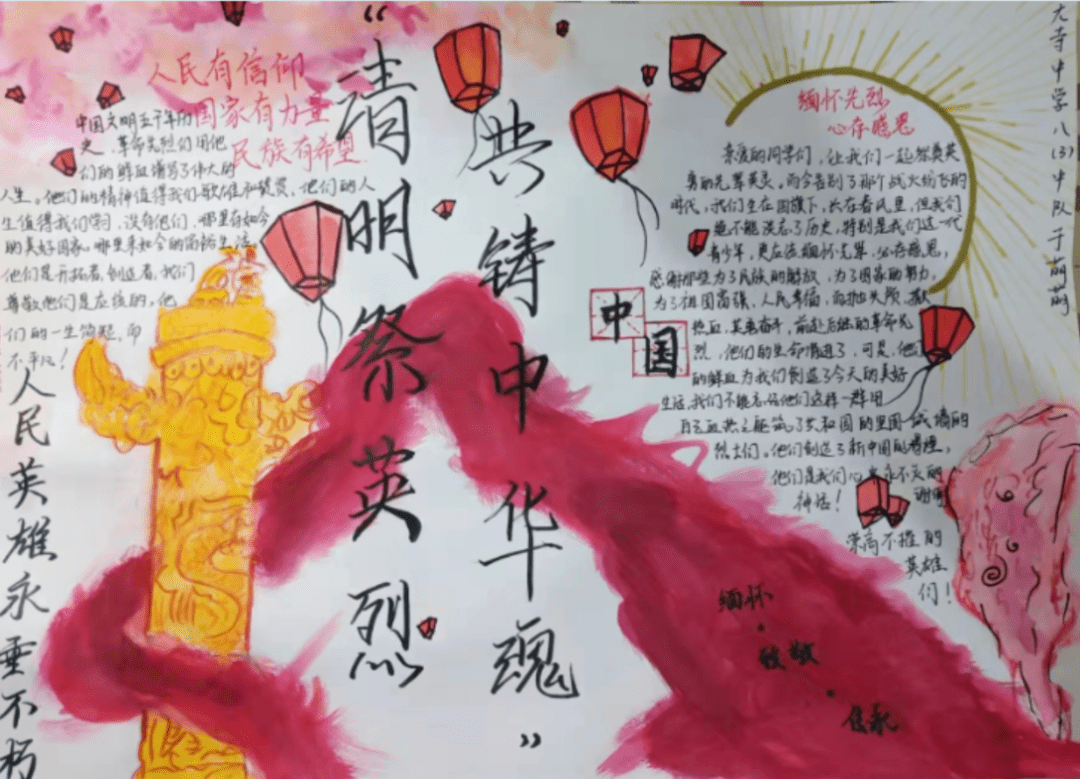 “清明祭英烈
共铸中华魂”
人民有信仰
国家有力量
民族有希望
中国文明五千年历
史，革命先烈们用他
们的鲜血谱写了伟大的
人生。他们的精神值得我们歌颂和赞赏，他们的人
生值得我们学习，没有他们，哪里有如今
的美好国家。哪里来如今的富裕生活。
他们是开拓者，创造者，我们
尊敬他们是应该的。他
们的一生简短，而
不平凡！
人民英雄永垂不朽
中国
缅怀先烈
心存感恩
亲爱的同学们，让我们一起祭奠英
勇的先辈英灵。而今告别了那个战火纷飞的
时代，我们生在国旗下，长在春风里，但我们
绝不能没忘了历史，特别是我们这一代
青少年，更应该缅怀先辈，心存感恩，
感谢那些为了民族的解放，为了国家的努力，
为了祖国富强、人民幸福，而抛头颅、献
热血，英勇奋斗，前赴后继的革命先
烈，他们的生命消逝了，可是，他们
的鲜血为我们创造了今天的美好
生活，我们不能忘记他们这样一群用
自己血热之躯筑了共和国的里国城墙的
烈士们。他们创造了新中国的
他们是我们心中永不灭的
神话！
谢谢
崇高不摧的
英雄
们！
缅怀
·
致敬
·
传承
大寺中学八（3）中队于萌萌